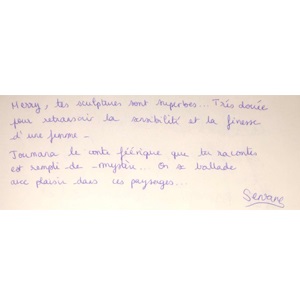 Merry, tes sculptures sont superbes... Très douée
pour retranscrir la sensibilité et la finesse
d'une femme -
Joumana le conte féérique que tu racontes
est rempli de mystère... On se ballade
avec plaisir dans ces paysages...
Servane